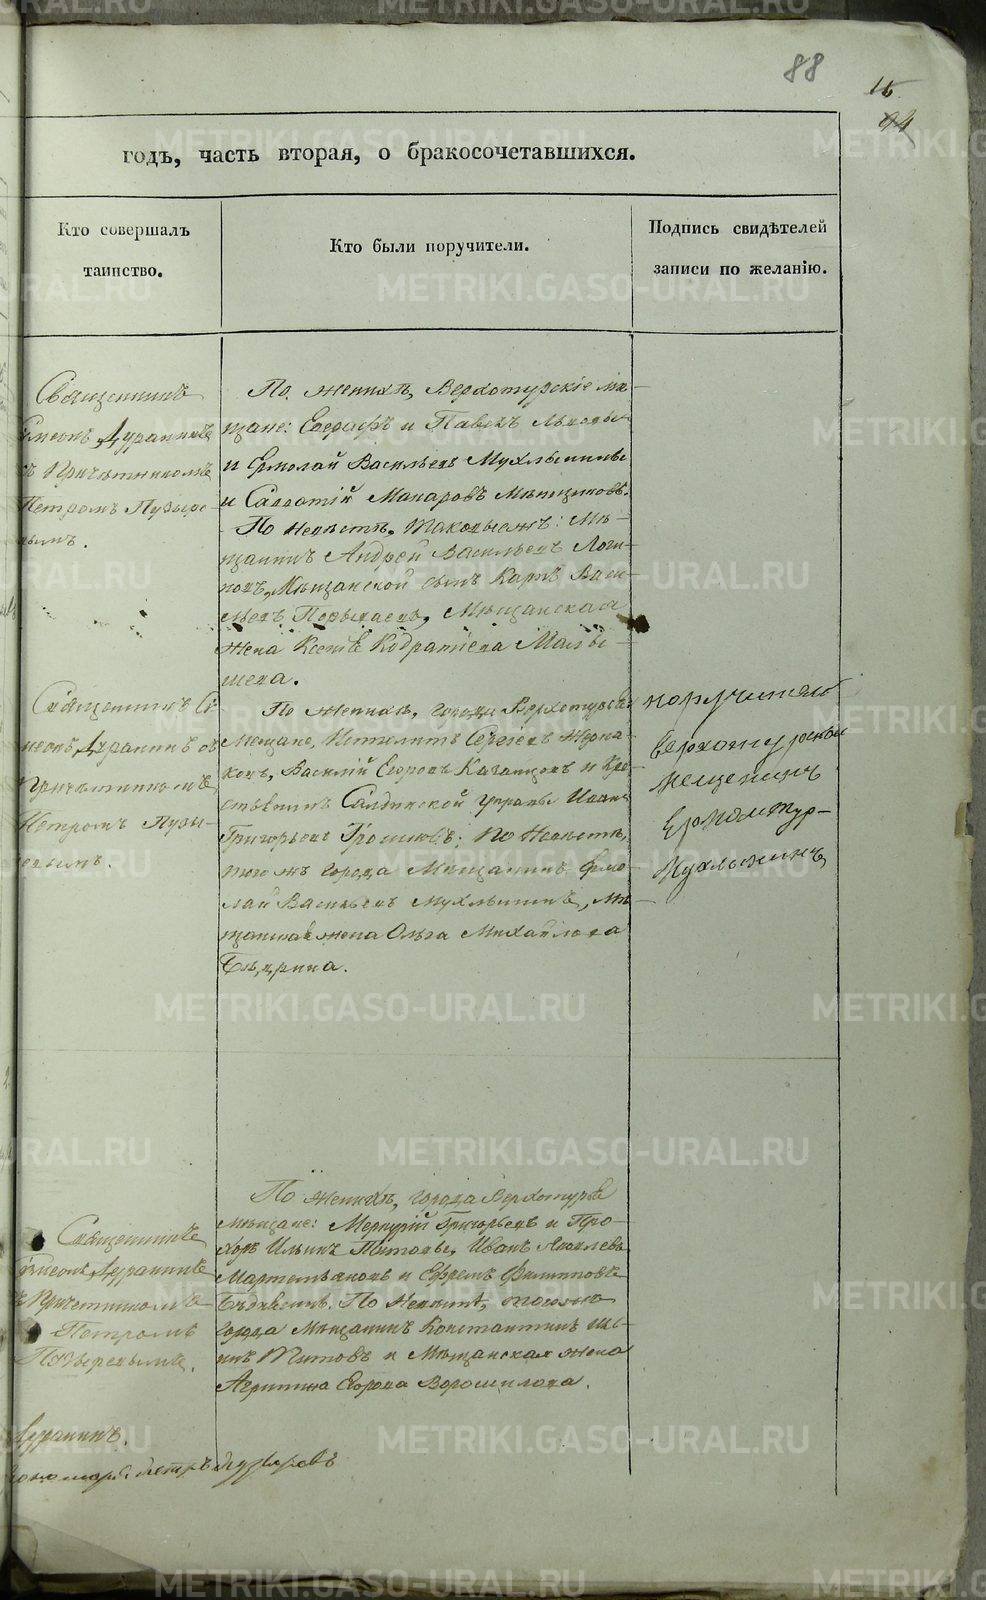 88
15
94
годъ, часть вторая, о бракосочетавшихся.
Кто совершалъ
таинство.
Кто были поручители.
Подпись свидѣтелей
записи по желанію.
Священникъ
Симеонъ Дуранинъ
съ Причетникомъ
Петромъ Пузыре-
вымъ.
По женихѣ, Верхотурскіе мѣ-
щане: Евграфъ и Павелъ
и Ермолай Васильевъ Мухлынинъ
и Савватій Макаровъ Мѣнщиковъ.
По невѣстѣ, таковыежъ: Мѣ-
щанинъ Андрей Васильевъ Логи-
новъ, Мѣщанской сынъ Карпъ Васи-
льевъ Мѣщанская
жена Ксенія Кодратіева Малы-
шева.
Священникъ Си-
меонъ Дуранинъ съ
Причетникомъ
Петромъ Пузы-
ревымъ.
По женихѣ, города Верхотурья
Мещане, Сергеевъ
Василій Егоровъ Казанцовъ и Кре-
стьянинъ Салдинской управы Иванъ
Григорьевъ Грошковъ; по невѣстѣ,
того жъ города Мѣщанинъ Ермо-
лай Васильевъ Мухлынинъ, Мѣ-
щанская жена Ольга Михайлова
Бѣдрина.
поручители
верхотурской
мещенинъ
Мухлынинъ
Священникъ
Симеонъ Дуранинъ
съ Причетникомъ
Петромъ
Пузыревымъ.
По женихѣ, города Верхотурья
Мѣщане: Меркурій Григорьевъ и Про-
хоръ Ильинъ Титовы, Иванъ Яковлевъ
Мартемьяновъ и Ефремъ Филиповъ
По невѣстѣ, тогожъ
города Мѣщанинъ Константинъ Иль-
инъ Титовъ и Мѣщанская жена
Агрипина Егорова Ворошилова.
Дуранинъ.
Пономарь Петръ Пузыревъ
METRIKI.GASO-URAL.RU